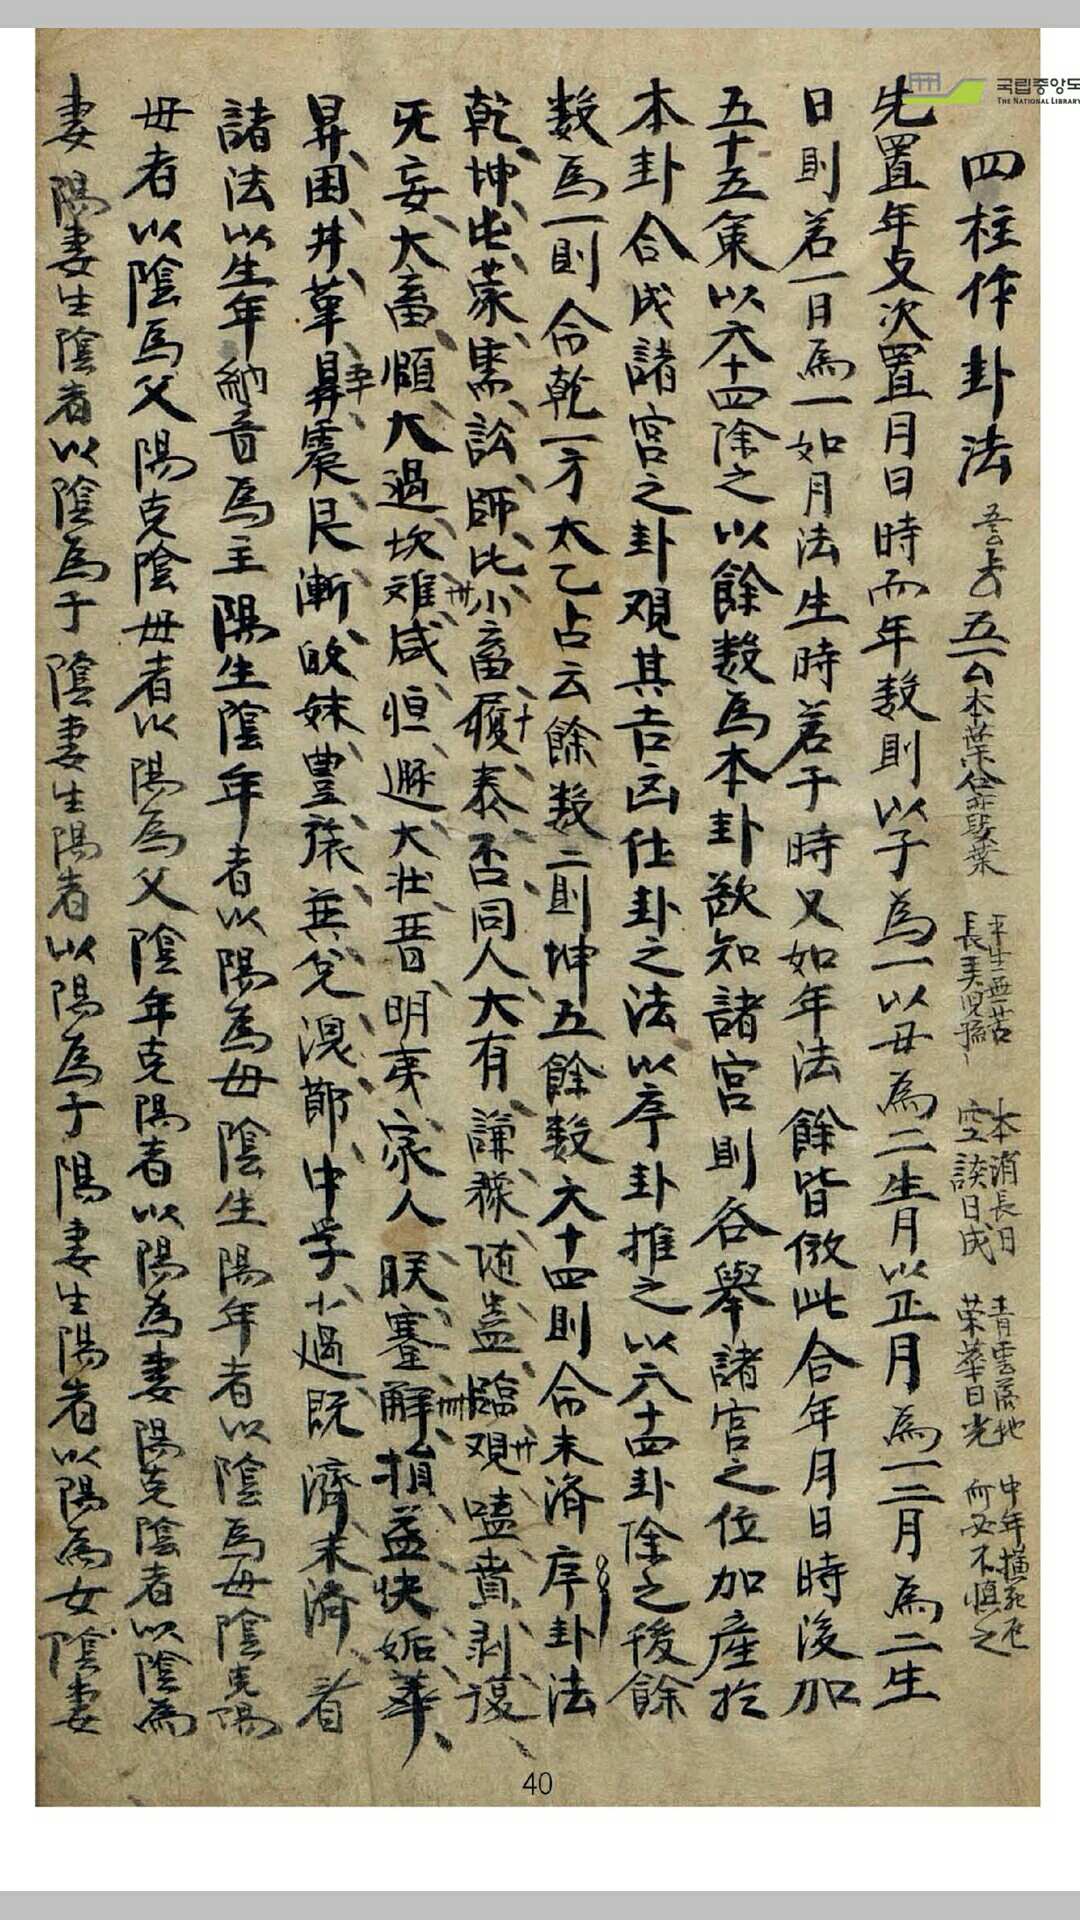 국립중앙도
THE NATIONAL LIBRARY
四柱作卦法 五 本葉合 葉
平生無苦
長美兒孫
本消長日
空談日成
青雲 地
榮華日光
中年横死厄
而 不慎之
先置年爻次置月日時而年數則以子為一以丑為二生月以正月為一二月為二生
日則若一日爲一如月法生時若子時又如年法餘皆倣此合年月日時後加
五十五策以六十四除之以餘數爲本卦欲知諸宮則各舉諸宮之位加産於
本卦合成諸宮之卦观其吉凶仕卦之法以序卦推之以六十四卦除之後餘
数爲一則命乾一才太乙占云餘数二則坤五餘数六十四則命未済序卦法
乾坤屯蒙需訟師比小畜履十泰否同人大有謙豫随蠱臨观廿噬賁剥復
无妄大畜頤大過坎难卅咸恒遯大壯晋明夷家人睽蹇解卌損益快姤萃
昇困井革鼎五十震艮漸歸妹豊旅巽兌渙節中孚小過既濟未濟 看
諸法以生年納音爲主陽生陰年者以陽為母陰生陽年者以陰爲母陰克陽
母者以陰爲父陽克陰母者以陽為父陰年克陽者以陽為妻陽克陰者以陰為
妻陽妻生陰者以陰為子陰妻生陽者以陽為子陽妻生陽者以陽為女陰妻
40